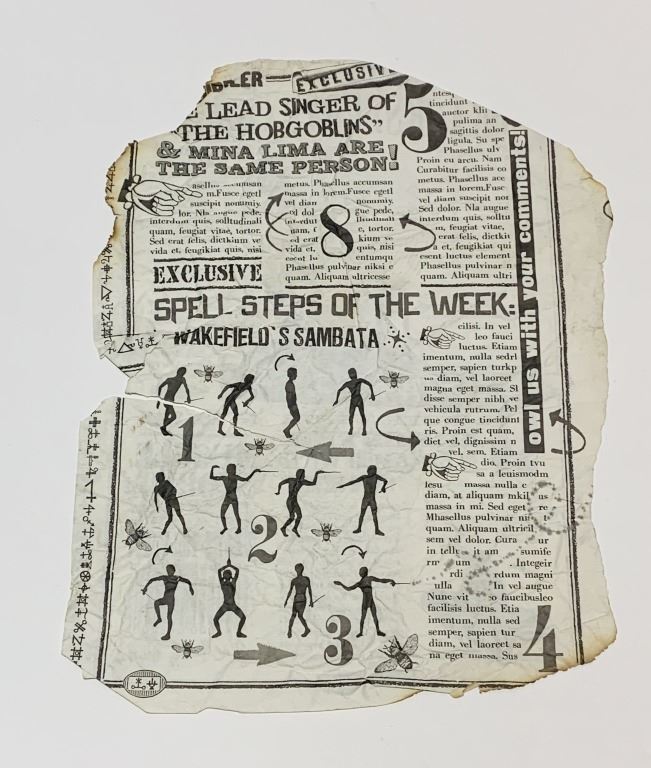 EXCLUSIV
LEAD SINGER OF
"THE HOBGOBLINS"
& MINA LIMA ARE
THE SAME PERSON!
accumsan
m.Fusce egetl
suscipit nonumiy,
lor. Nla augue pede,
interdum quis, sollitudin
quam, feugiat vitae, tortor.
Sed erat felis, dictkium ve
vida et, feugikiat quis, nisi
metus. Phasellus accumsan
massa in lorem.Fusce egetl
vel diam nonumiy,
gue pede,
tortor.
kium
quis, nisi
entumqu
Phasellus pulvinar niksi e
quam. Aliquam ultricesse
8
5
tincidunt
auctor
pulima an
sagittis dolor
ligula. Su spe
Phasellus ulv
Proin eu arcu. Nam
Curabitur facilisis co
metus. Phasellus ace
massa in lorem.Fusc
vel diam suscipit nor
Sed dolor. Nla augue
interdum quis, solltu
m, feugiat vitae,
erat felis, dictkit
et, feugikiat qui
esent luctus element
Phasellus pulvinar n
quam. Aliquam ultri
EXCLUSIVE
SPELL STEPS OF THE WEEK:
WAKEFIELD`S SAMBATA
1
2
3
cilisi. In vel
leo fauci
luctus. Etiam
imentum, nulla sedrl
semper, sapien turkp
diam, vel laoreet
magna eget massa. Sl
disse semper nibh ve
vehicula rutrum. Pel
que congue tincidunt
ris. Proin est quam,
diet vel, dignissim n
vel, sem. Etiam
dio. Proin tvu
sa a leuismodm
massa nulla c
diam, at aliquam mkil us
massa in mi. Sed eget re
Mhasellus pulvinar
quam. Aliquam ultricil
sem vel dolor. Cura ur
in tellu it am sumife
Integeir
rdum magni
ulla In vel augue
Nunc vit o faucibusleo
facilisis luctus. Etia
imentum, nulla sed
semper, sapien tur
diam, vel laoreet sa
na eget massa. Sus
4
owl us with your comments!